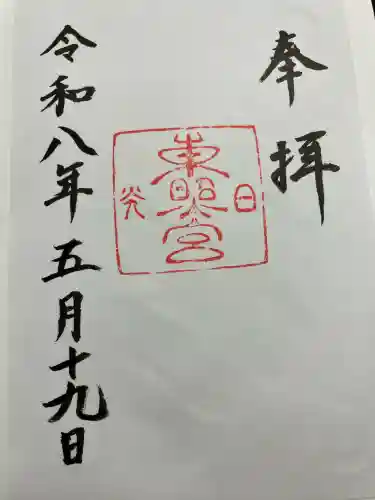 奉拝
日光
東照宮
令和八年五月十九日